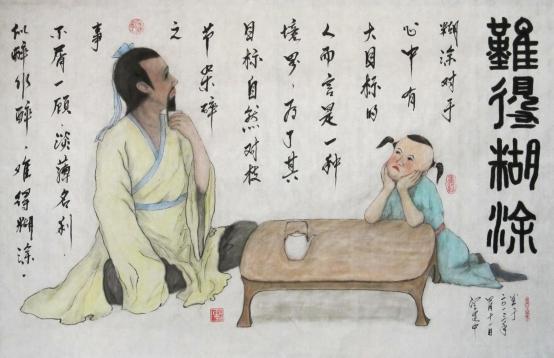 難得糊涂
糊涂对于
心中有
大目标的
人而言是一种
境界,为了其
目标自然对枝
节杂碎
之
事
不屑一顾,淡薄名利.
似醉非醉,难得糊涂.
四月十一日